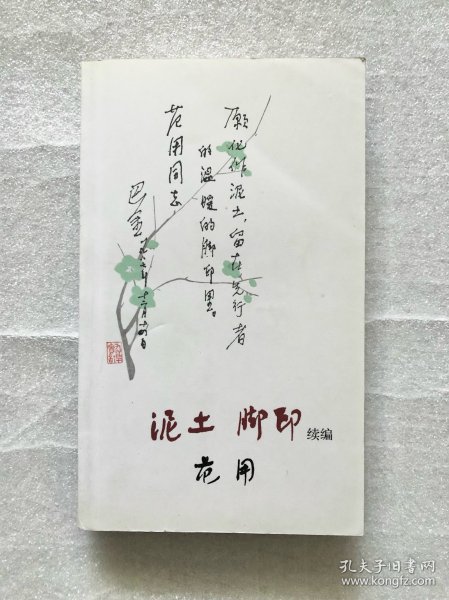 愿化作泥土，留在先行者
的温暖的脚印里。
范用同志
巴金
泥土 脚印 续编
范用
孔夫子旧书网
www.kongfz.com